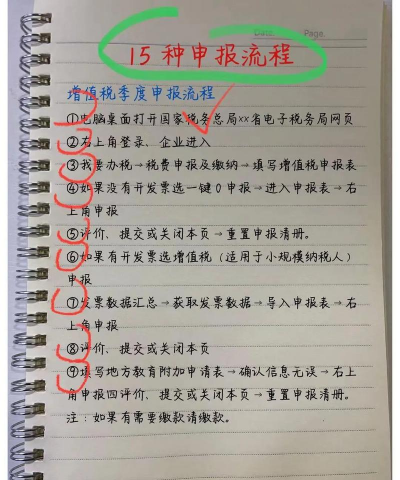 Date Page
15种申报流程
增值税季度申报流程
①电脑桌面打开国家税务总局xx省电子税务局网页
②右上角登录、企业进入
③我要办税→税费申报及缴纳→填写增值税申报表
④如果没有开发票选一键0申报→进入申报表→右
上角申报
⑤评价、提交或关闭本页→重置申报清册。
⑥如果有开发票选增值税（适用于小规模纳税人）
申报
⑦发票数据汇总→获取发票数据→导入申报表→右
上角申报
⑧评价、提交或关闭本页
⑨填写地方教育附加申请表→确认信息无误→右上
角申报四评价、提交或关闭本页→重置申报清册。
注：如果有需要缴款请缴款。